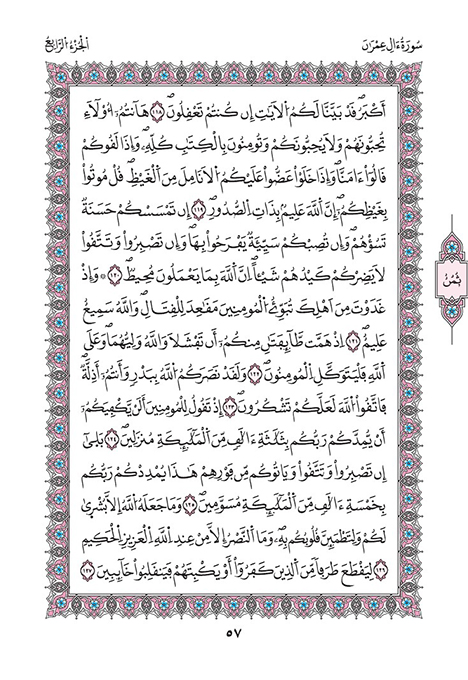 سُورَةُ ءَالِ عِمْرَٰنَ
اَلْجُزْءُ اُلرَّابِعُ
أَكْبَرُۖ قَدْ بَيَّنَّا لَكُمُ اُ۬لْأيَٰتِ إِن كُنتُمْ تَعْقِلُونَۖ ١١٨ هَٰٓأَنتُمُۥٓ أُوْلَآءِ
تُحِبُّونَهُمْ وَلَا يُحِبُّونَكُمْ وَتُومِنُونَ بِالْكِتَٰبِ كُلِّهِۦۖ وَإِذَا لَقُوكُمْ
قَالُوٓاْ ءَامَنَّاۖ وَإِذَا خَلَوْاْ عَضُّواْ عَلَيْكُمُ اُ۬لَانَامِلَ مِنَ اَ۬لْغَيْظِۖ قُلْ مُوتُواْ
بِغَيْظِكُمُۥٓۖ إِنَّ اَ۬للَّهَ عَلِيمُۢ بِذَاتِ اِ۬لصُّدُورِۖ ١١٩ إِن تَمْسَسْكُمْ حَسَنَةٞ
تَسُؤْهُمْۖ وَإِن تُصِبْكُمْ سَيِّئَةٞ يَفْرَحُواْ بِهَاۖ وَإِن تَصْبِرُواْ وَتَتَّقُواْ
لَا يَضِرْكُمْ كَيْدُهُمْ شَيْـًٔاۖ اِنَّ اَ۬للَّهَ بِمَا يَعْمَلُونَ مُحِيطٞۖ ١٢٠ ۞ وَإِذْ
غَدَوْتَ مِنَ اَهْلِكَ تُبَوِّئُ اُ۬لْمُومِنِينَ مَقَٰعِدَ لِلْقِتَالِۖ وَاللَّهُ سَمِيعٌ
عَلِيمٌۖ ١٢١ إِذْ هَمَّت طَّآئِفَتَٰنِ مِنكُمُۥٓ أَن تَفْشَلَا وَاللَّهُ وَلِيُّهُمَاۖ وَعَلَى
اَ۬للَّهِ فَلْيَتَوَكَّلِ اِ۬لْمُومِنُونَۖ ١٢٢ وَلَقَدْ نَصَرَكُمُ اُ۬للَّهُ بِبَدْرٖ وَأَنتُمُۥٓ أَذِلَّةٞۖ
فَاتَّقُواْ اُ۬للَّهَ لَعَلَّكُمْ تَشْكُرُونَۖ ١٢٣ إِذْ تَقُولُ لِلْمُومِنِينَ أَلَنْ يَّكْفِيَكُمُۥٓ
أَنْ يُّمِدَّكُمْ رَبُّكُم بِثَلَٰثَةِ ءَالَٰفٖ مِّنَ اَ۬لْمَلَٰٓئِكَةِ مُنزَلِينَۖ ١٢٤ بَلَىٰٓ
إِن تَصْبِرُواْ وَتَتَّقُواْ وَيَاتُوكُم مِّن فَوْرِهِمْ هَٰذَا يُمْدِدْكُمْ رَبُّكُم
بِخَمْسَةِ ءَالَٰفٖ مِّنَ اَ۬لْمَلَٰٓئِكَةِ مُسَوَّمِينَۖ ١٢٥ وَمَا جَعَلَهُ اُ۬للَّهُ إِلَّا بُشْر۪ىٰ
لَكُمْ وَلِتَطْمَئِنَّ قُلُوبُكُم بِهِۦۖ وَمَا اَ۬لنَّصْرُ إِلَّا مِنْ عِندِ اِ۬للَّهِ اِ۬لْعَزِيزِ اِ۬لْحَكِيمِ
١٢٦ لِيَقْطَعَ طَرَفاٗ مِّنَ اَ۬لذِينَ كَفَرُوٓاْ أَوْ يَكْبِتَهُمْ فَيَنقَلِبُواْ خَآئِبِينَۖ ١٢٧
ثُمُنٌ
٥٧